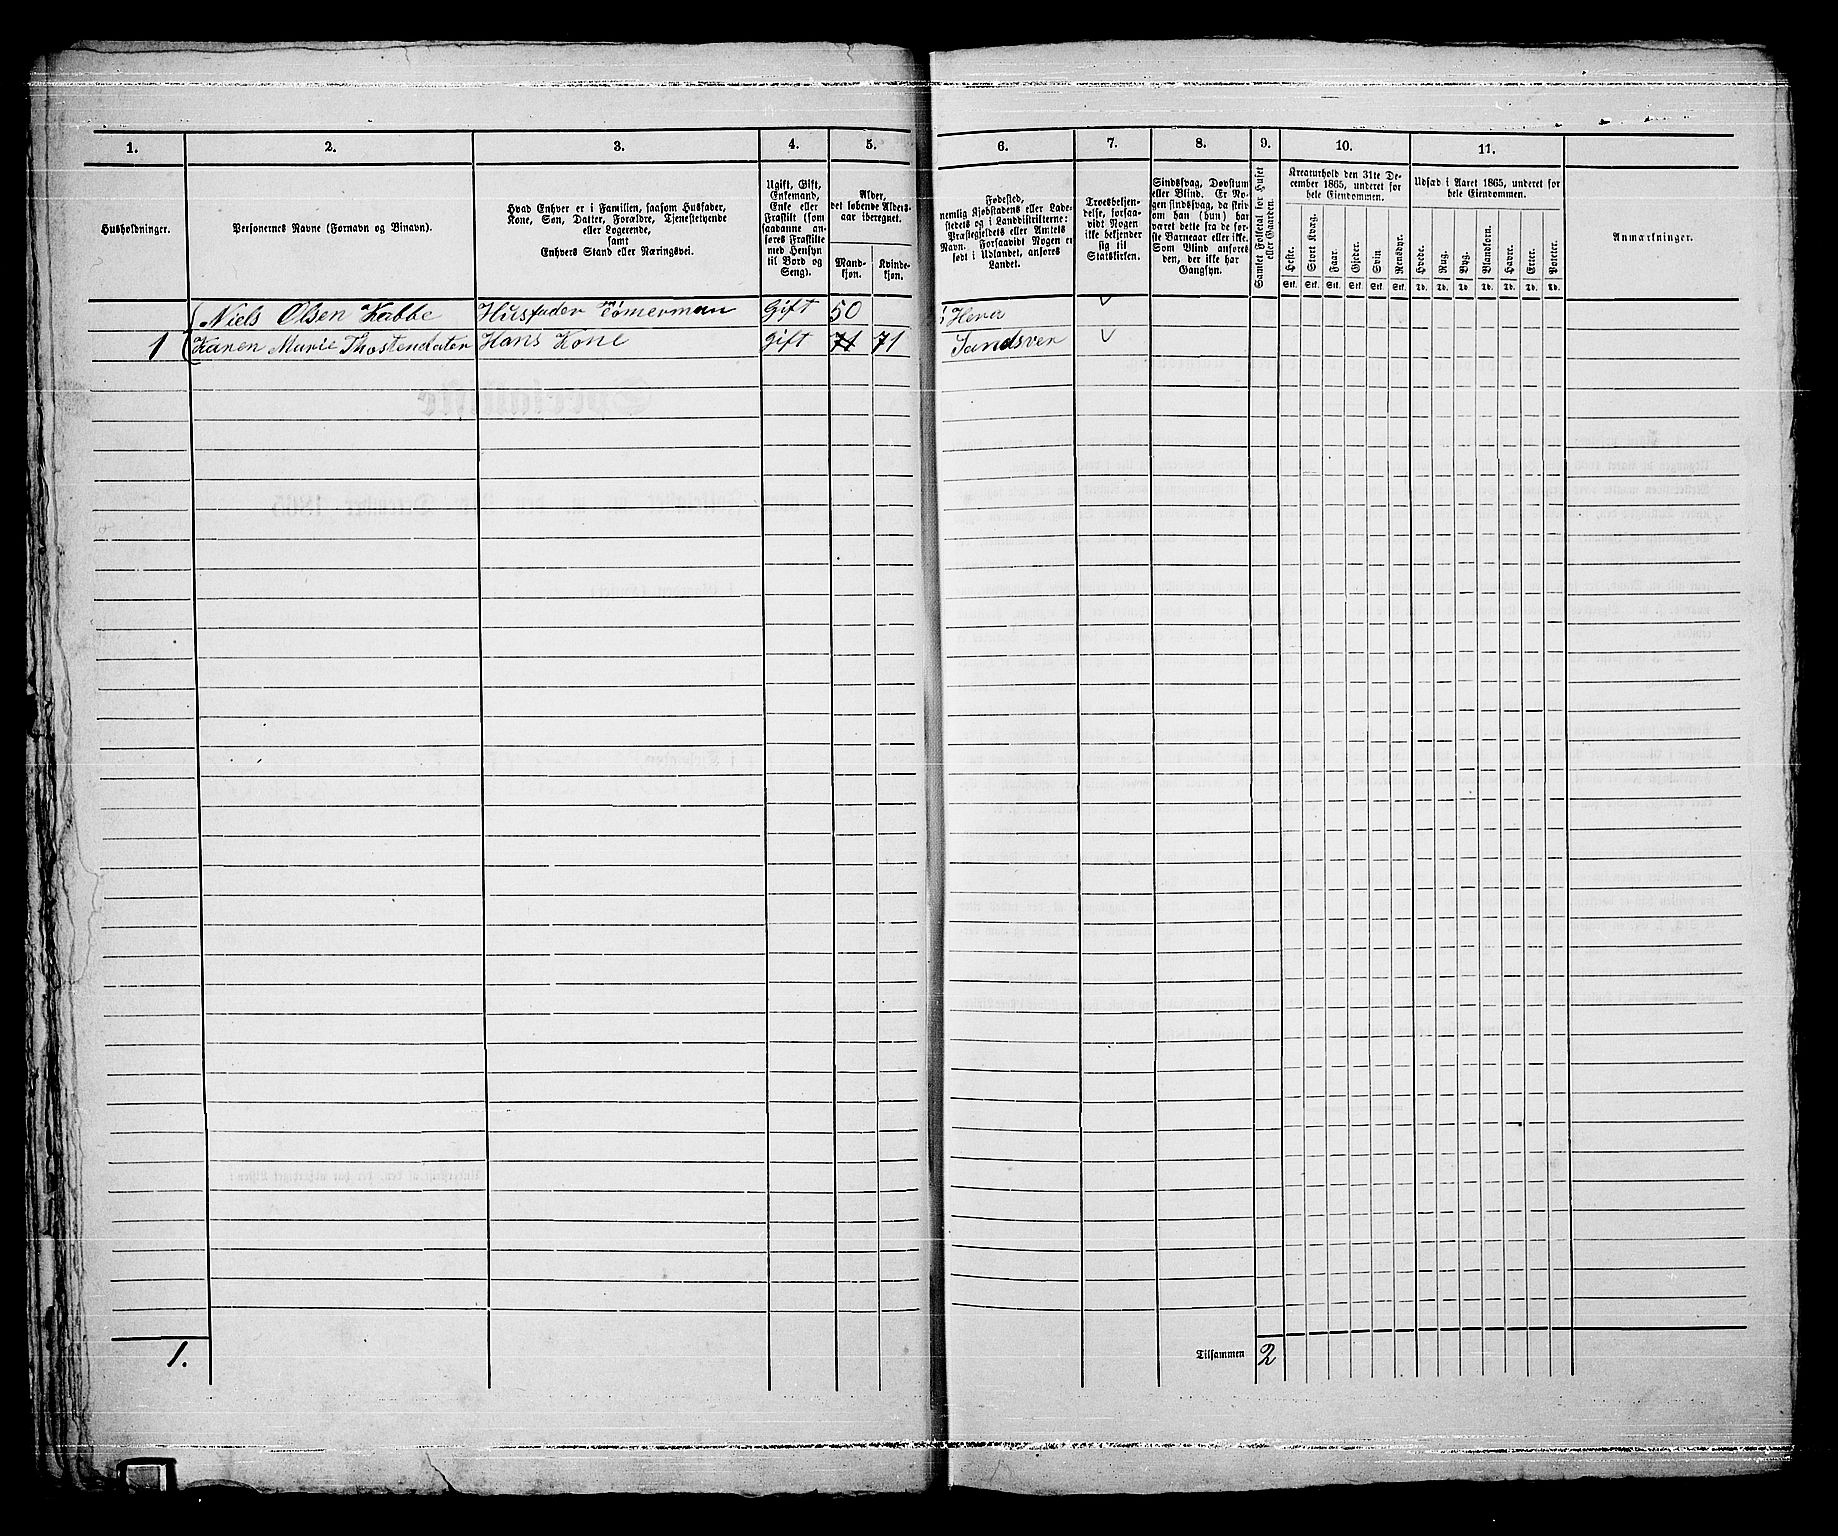 1. 2. 3. 4. 5. 6. 7. 8. 9. 10. 11.
Husholdninger.
Personernes Navne (Fornavn og Binavn).
Hvad Enhver er i Familien, saasom Husfader,
Kone, Søn, Datter, Forældre, Tjenestetyende
eller Logerende,
samt
Enhvers Stand eller Næringsvei.
Ugift, Gift,
Enkemand,
Enke eller
Fraskilt (som
saadanne an-
føres Fraskilte
med Hensyn
til Bord og
Seng).
Alder,
det løbende Alders-
aar iberegnet.
Mand-
kjøn.
Kvinde-
kjøn.
Fødested,
nemlig Kjøbstadens eller Lade-
stedets og i Landdistrikterne:
Præstegjeldets eller Amtets
Navn. Forsaavidt Nogen er
født i Udlandet, anføres
Landet.
Troesbekjen-
delse, forsaa-
vidt Nogen ikke
bekjender
sig til
Statskirken.
Sindssvag, Døvstum
eller Blind. Er No-
gen sindssvag, da skriv
om han (hun) har
været dette fra de før-
ste Barneaar eller ikke.
Som Blind anføres
den, der ikke har
Gangsyn.
Samlet Folketal for Huset
eller Gaarden.
Kreaturhold den 31te De-
cember 1865, underet for
hele Eiendommen.
Heste. Stort Kvæg. Faar. Gjeder. Svin. Rensdyr.
Stk. Stk. Stk. Stk. Stk. Stk.
Udsæd i Aaret 1865, underet for
hele Eiendommen.
Hvede. Rug. Byg. Blandkorn. Havre. Erter. Poteter.
Td. Td. Td. Td. Td. Td. Td.
Anmærkninger.
Niels Olsen Labbe Husfader Tømerman Gift 50 i Hera
1 Karen Marie Thostendater Hans Kone Gift 71 71 Sandsver
1.
Tilsammen 2